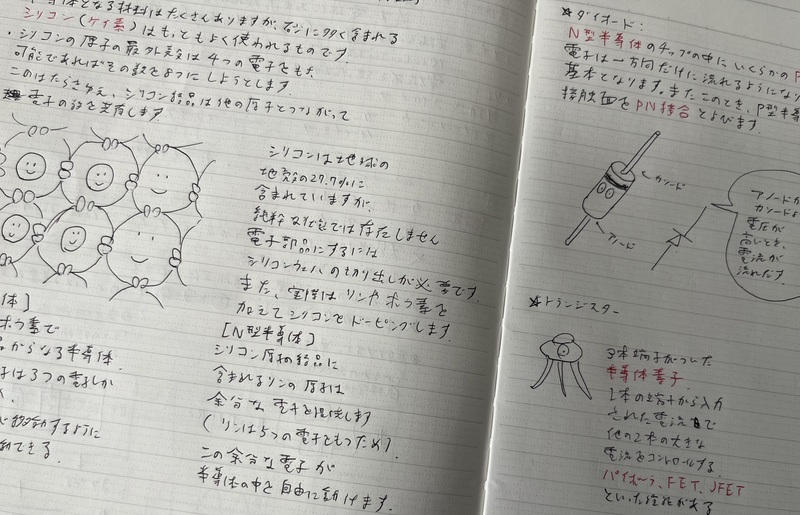 半導体となる材料はたくさんありますが、石に多く含まれる
シリコン(ケイ素)はもっともよく使われるものです。
・シリコンの原子の最外殻は4つの電子をもち
可能であればその数を8つにしようとします。
このはたらきゆえ、シリコン結晶は他の原子とつながって
電子の殻を共有します
シリコンは地球の
地殻の27.7%に
含まれていますが、
純粋な状態では存在しません
電子部品にするには
シリコンウェハのもち切り出しが必要です。
また、実際はリンやホウ素を
加えてシリコンをドーピングします。
体]
ホウ素で
からなる半導体.
子は3つの電子しか
移動するように
動できる.
[N型半導体]
シリコン原子の結晶に
含まれるリンの原子は
余分な電子を提供します
(リンは5つの電子をもつため).
この余分な電子が
半導体の中を自由に動けます.
☆ダイオード:
N型半導体のチップの中にいくらかのP
電子は一方向だけに流れるようになり
基本となります。またこのとき、P型半導
接触面をPN接合とよびます.
カソード
アノード
アノードが
カソードよ
電圧が
高いとき、
電流が
流れだす.
☆トランジスター
3本端子がついた
半導体素子.
1本の端子から入力
された電流で
他の2本の大きな
電流をコントロールする.
バイポーラ、FET、JFET
といった種類がある